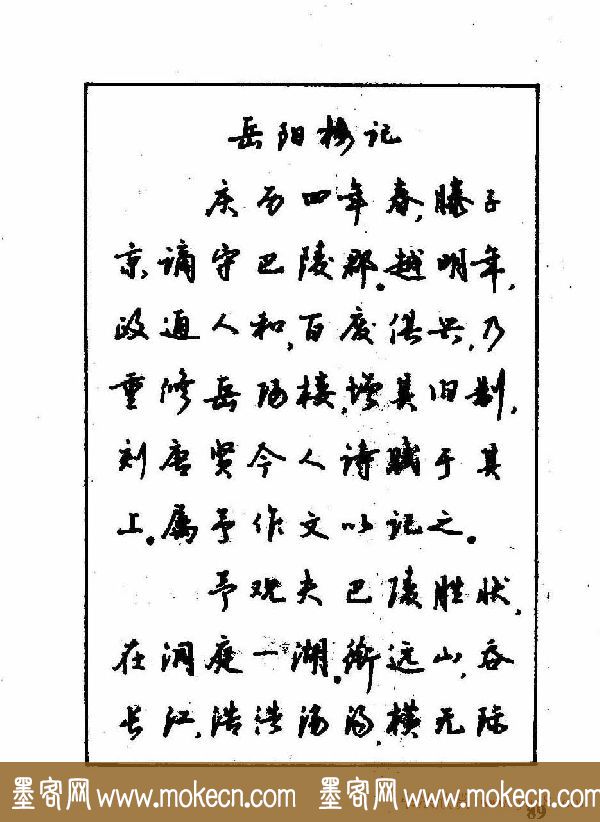 岳阳楼记
庆历四年春,滕子
京,谪守巴陵郡。越明年,
政通人和,百废俱兴,乃
重修岳阳楼,增其旧制,
刻唐贤今人诗赋于其
上。属予作文以记之。
予观夫巴陵胜状,
在洞庭一湖。衔远山,吞
长江,浩浩汤汤,横无际
墨客网 www.mokecn.com 墨客网 www.mokecn.com
89